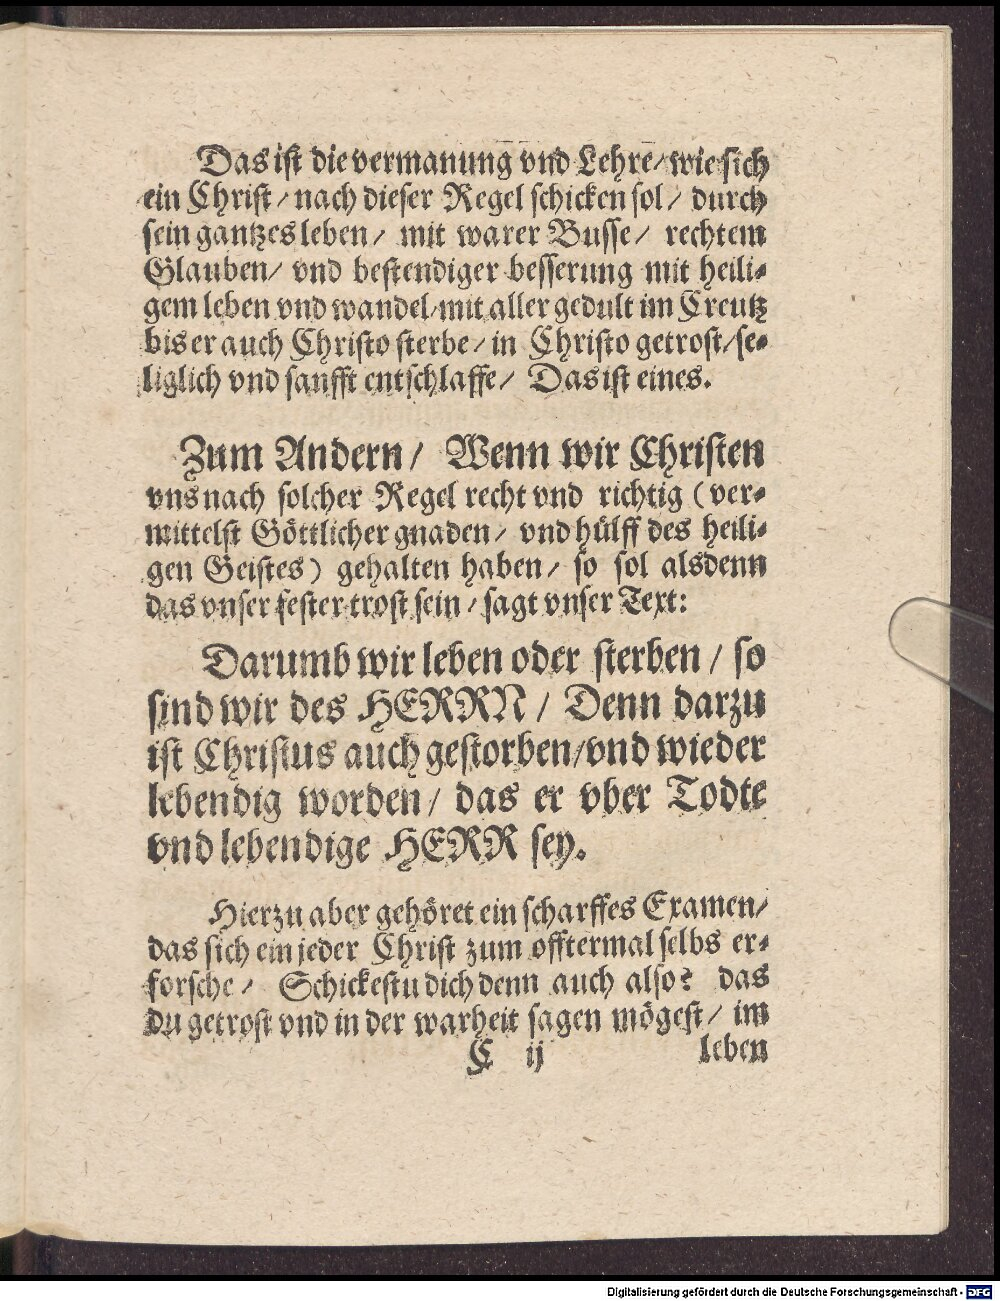 Das ist die vermanung vnd Lehre/ wie sich
ein Christ/ nach dieser Regel schicken sol/ durch
sein gantzes leben/ mit warer Busse/ rechtem
Glauben/ vnd bestendiger besserung mit heili⸗
gem leben vnd wandel/ mit aller gedult im Creutz
bis er auch Christo sterbe/ in Christo getrost/ se⸗
liglich vnd sanfft entschlaffe/ Das ist eines.
Zum Andern/ Wenn wir Christen
vns nach solcher Regel recht vnd richtig (ver⸗
mittelst Göttlicher gnaden/ vnd hülff des heili⸗
gen Geistes) gehalten haben/ so sol alsdenn
das vnser fester trost sein/ sagt vnser Text:
Darumb wir leben oder sterben/ so
sind wir des HERRN/ Denn darzu
ist Christus auch gestorben/ vnd wieder
lebendig worden/ das er vber Todte
vnd lebendige HERR sey.
Hierzu aber gehöret ein scharffes Examen/
das sich ein jeder Christ zum offtermal selbs er⸗
forsche/ Schickestu dich denn auch also? das
du getrost vnd in der warheit sagen mögest/ im
C ij leben
Digitalisierung gefördert durch die Deutsche Forschungsgemeinschaft - DFG